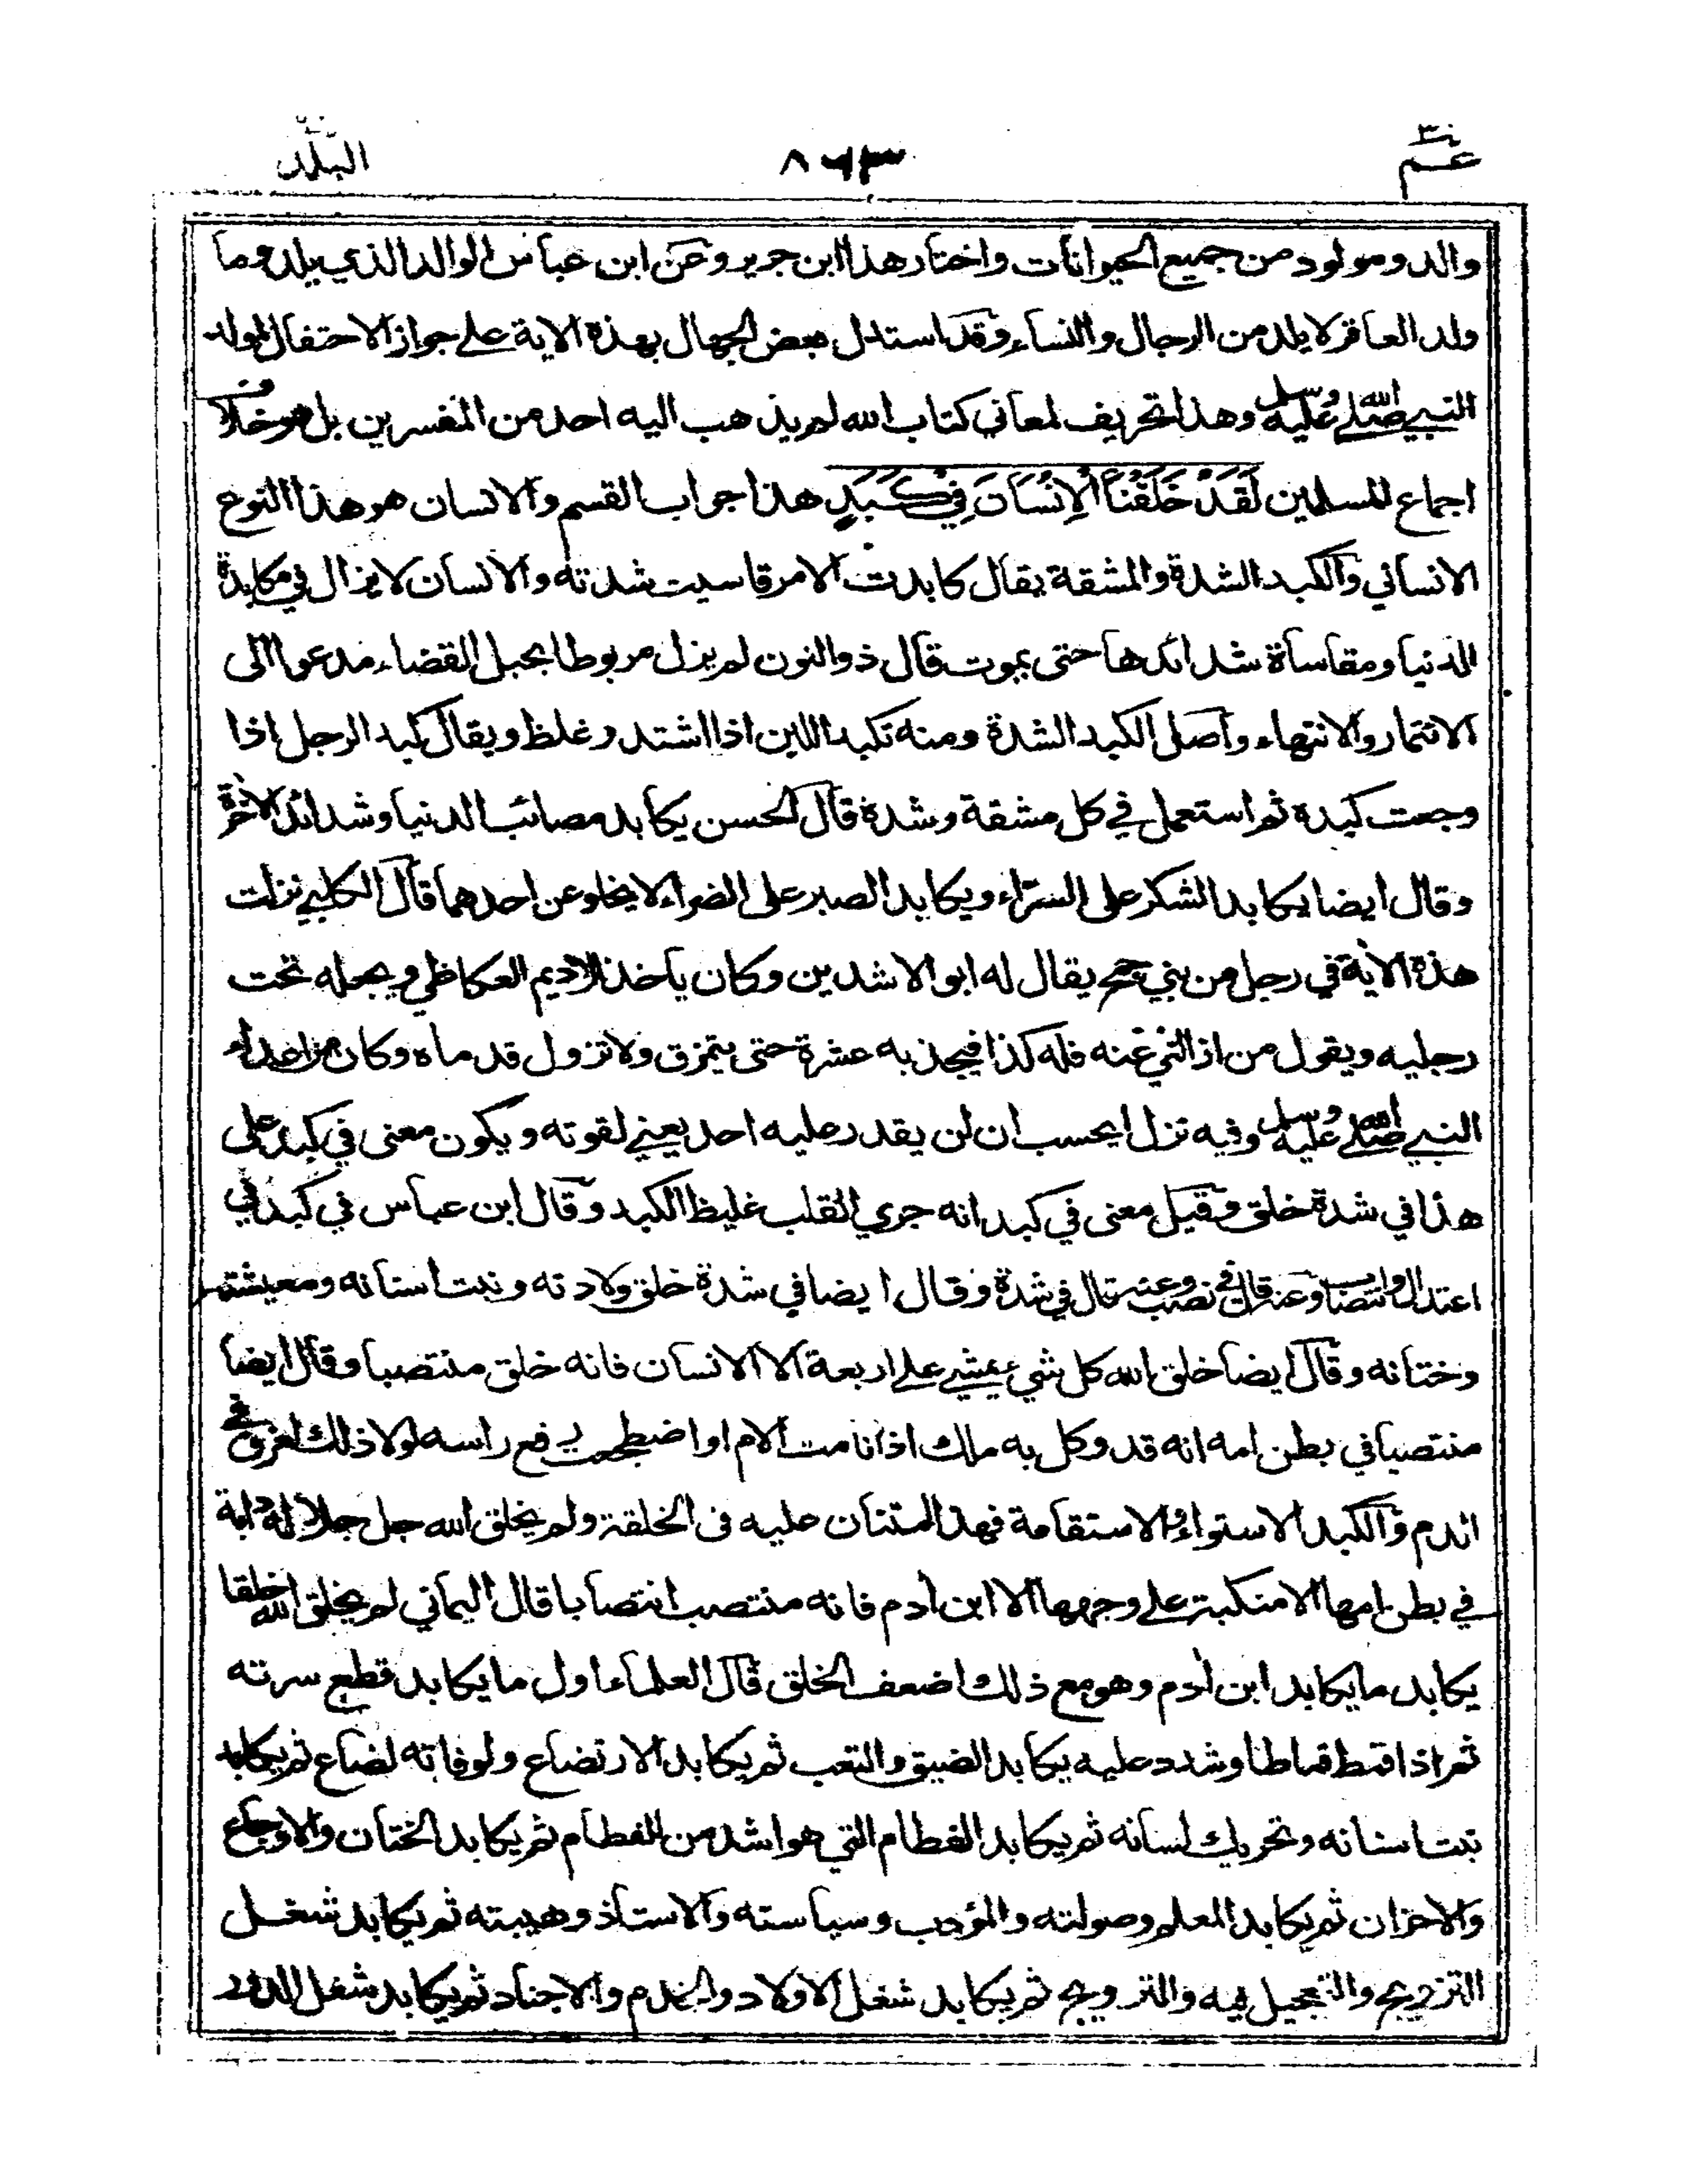 عم ٣٠ ٨٦٣ البلد
والد ومولود من جميع الحيوانات واختار هذا ابن جرير وعن ابن عباس الوالد الذي يلد وما
ولد العاقر لا يلد من الرجال والنساء وقد استدل بعض الجهال بهذه الاية على جواز الاحتفال لمولد
النبي صلى الله عليه وسلم وهذا تحريف لمعاني كتاب الله لم يذهب اليه احد من المفسرين بل هو خلاف
اجماع المسلمين لَقَدْ خَلَقْنَا الْاِنْسَانَ فِيْ كَبَدٍ هذا جواب القسم والانسان هو هذا النوع
الانساني والكبد الشدة والمشقة يقال كابدت الامر قاسيت شدته والانسان لا يزال في مكابدة
الدنيا ومقاساة شدائدها حتى يموت قال ذو النون لم يزل مربوطا بحبل القضاء مدعوا الى
الائتمار والانتهاء واصل الكبد الشدة ومنه تكبد اللبن اذا اشتد وغلظ ويقال كبد الرجل اذا
وجعت كبده ثم استعمل في كل مشقة وشدة قال الحسن يكابد مصائب الدنيا وشدائد الاخرة
وقال ايضا يكابد الشكر على السراء ويكابد الصبر على الضراء لا يخلو عن احدهما قال الكلبي نزلت
هذه الاية في رجل من بني جمح يقال له ابو الاشدين وكان ياخذ الاديم العكاظي ويجعله تحت
رجليه ويقول من ازالني عنه فله كذا فيجذبه عشرة حتى يتمزق ولا تزول قدماه وكان من اعداء
النبي صلى الله عليه وسلم وفيه نزل ايحسب ان لن يقدر عليه احد يعني لقوته ويكون معنى في كبد على
هذا في شدة خلق وقيل معنى في كبد انه جري القلب غليظ الكبد وقال ابن عباس في كبد اي
اعتدال وانتصاب وعنه قال في نصب وعنه قال في شدة وقال ايضا في شدة خلق ولادته ونبت اسنانه ومعيشته
وختانه وقال ايضا خلق الله كل شيء يمشي على اربعة الا الانسان فانه خلق منتصبا وقال ايضا
منتصبا في بطن امه انه قد وكل به ملك اذا نامت الام او اضطجعت رفع راسه لولا ذلك لغرق في
الدم والكبد الاستواء والاستقامة فهذا امتنان عليه فى الخلقة ولم يخلق الله جل جلاله دابة
في بطن امها الا منكبة على وجهها الا ابن ادم فانه منتصب انتصابا قال اليماني لم يخلق الله خلقا
يكابد ما يكابد ابن ادم وهو مع ذلك اضعف الخلق قال العلماء اول ما يكابد قطع سرته
ثم اذا قمط قماطا وشدد عليه يكابد الضيق والتعب ثم يكابد الارتضاع ولو فاته لضاع ثم يكابد
نبت اسنانه وتحريك لسانه ثم يكابد الفطام التي هو اشد من اللطام ثم يكابد الختان والاوجاع
والاحزان ثم يكابد المعلم وصولته والمؤدب وسياسته والاستاذ وهيبته ثم يكابد شغل
التزويج والتعجيل فيه والترويج ثم يكابد شغل الاولاد والخدم والاجناد ثم يكابد شغل الدور